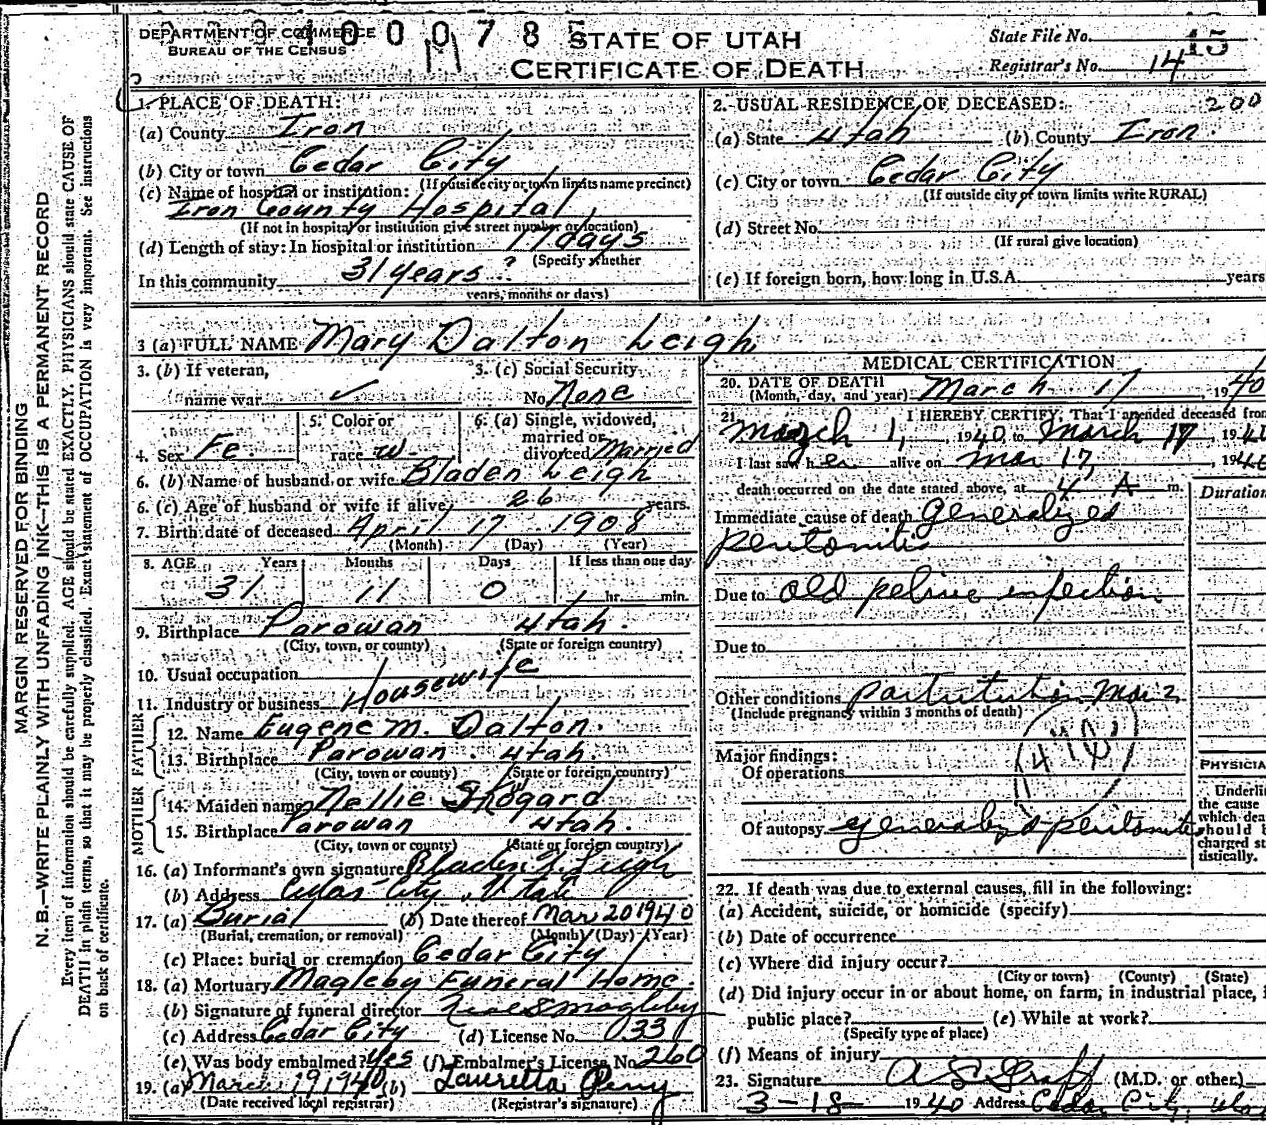 MARGIN RESERVED FOR BINDING
N. B.—WRITE PLAINLY WITH UNFADING INK—THIS IS A PERMANENT RECORD
Every item of information should be carefully supplied. AGE should be stated EXACTLY. PHYSICIANS should state CAUSE OF
DEATH in plain terms, so that it may be properly classified. Exact statement of OCCUPATION is very important. See instructions
on back of certificate.
DEPARTMENT OF COMMERCE
BUREAU OF THE CENSUS
STATE OF UTAH
CERTIFICATE OF DEATH
State File No. 15
Registrar's No. 14
1. PLACE OF DEATH:
(a) County Iron
(b) City or town Cedar City
(If outside city or town limits name precinct)
(c) Name of hospital or institution:
Iron County Hospital
(If not in hospital or institution give street number or location)
(d) Length of stay: In hospital or institution 17 days
(Specify whether
In this community 31 years ?
years, months or days)
2. USUAL RESIDENCE OF DECEASED: 200
(a) State Utah (b) County Iron
(c) City or town Cedar City
(If outside city or town limits write RURAL)
(d) Street No.
(If rural give location)
(e) If foreign born, how long in U.S.A. years
3 (a) FULL NAME Mary Dalton Leigh
3. (b) If veteran,
name war ✓
3. (c) Social Security
No. None
4. Sex Fe.
5. Color or
race w.
6. (a) Single, widowed,
married or
divorced Married
6. (b) Name of husband or wife Bladen Leigh
6. (c) Age of husband or wife if alive 26 years.
7. Birth date of deceased April 17 1908
(Month) (Day) (Year)
8. AGE Years Months Days If less than one day
31 11 0 hr. min.
9. Birthplace Parowan Utah.
(City, town, or county) (State or foreign country)
10. Usual occupation
11. Industry or business Housewife
FATHER
12. Name Eugene M. Dalton.
13. Birthplace Parowan. Utah
(City, town or county) (State or foreign country)
MOTHER
14. Maiden name Nellie
15. Birthplace Parowan Utah.
(City, town or county) (State or foreign country)
16. (a) Informant's own signature Bladen Leigh
(b) Address Cedar City, Utah
17. (a) Burial (b) Date thereof Mar 20 1940
(Burial, cremation, or removal) (Month) (Day) (Year)
(c) Place: burial or cremation Cedar City
18. (a) Mortuary Magleby Funeral Home.
(b) Signature of funeral director Magleby
(c) Address Cedar City (d) License No. 033
(e) Was body embalmed? Yes (f) Embalmer's License No. 260
19. (a) March 19, 1940 (b) Lauretta Perry
(Date received local registrar) (Registrar's signature)
MEDICAL CERTIFICATION
20. DATE OF DEATH
(Month, day, and year) March 17 1940
21. I HEREBY CERTIFY, That I attended deceased from
March 1, 1940, to March 17, 1940
I last saw her alive on Mar 17, 1940
death occurred on the date stated above, at 4 A m.
Duration
Immediate cause of death Generalized
peritonitis
Due to old pelvic infection
Due to
Other conditions parturition Mar 2
(Include pregnancy within 3 months of death)
Major findings:
Of operations
Of autopsy generalized peritonitis
PHYSICIA
Underli
the cause
which dea
should b
charged st
tistically.
22. If death was due to external causes, fill in the following:
(a) Accident, suicide, or homicide (specify)
(b) Date of occurrence
(c) Where did injury occur?
(City or town) (County) (State)
(d) Did injury occur in or about home, on farm, in industrial place, i
public place? (e) While at work?
(Specify type of place)
(f) Means of injury
23. Signature A L Graff (M.D. or other)
3-18- 1940 Address Cedar City, Utah